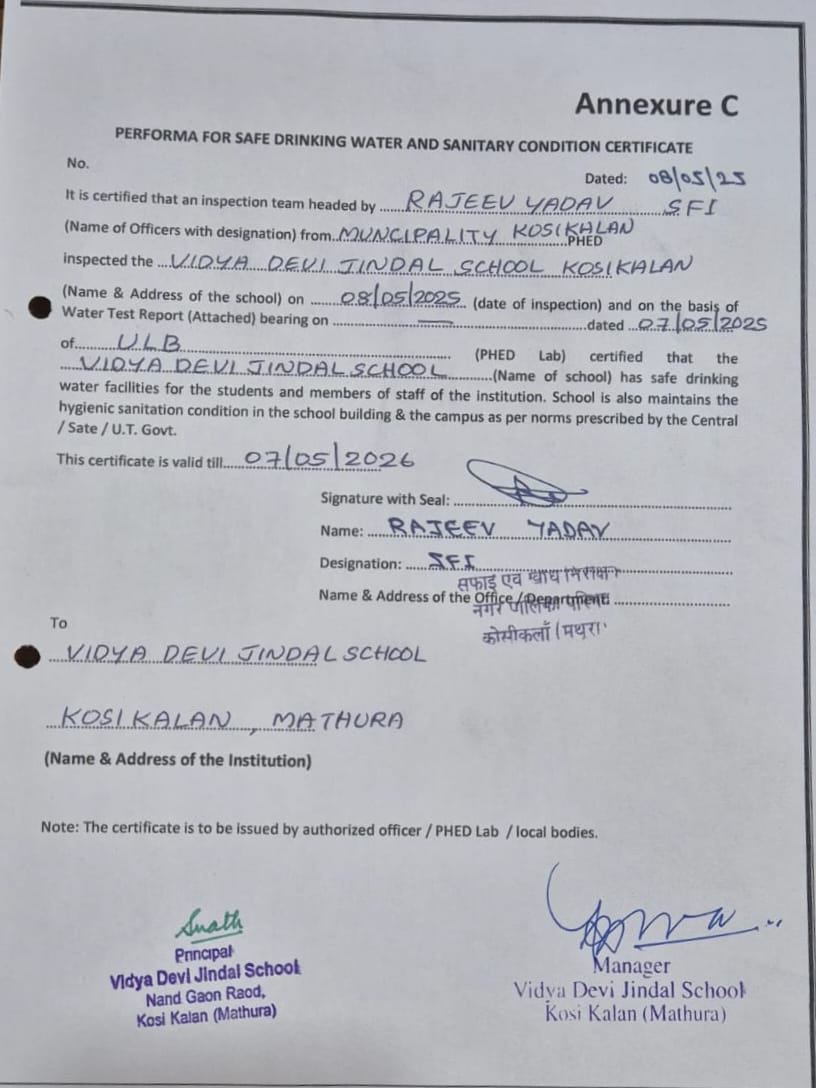 Annexure C
PERFORMA FOR SAFE DRINKING WATER AND SANITARY CONDITION CERTIFICATE
No.
Dated: 08/05/25
It is certified that an inspection team headed by ......RAJEEV YADAV......SFI
(Name of Officers with designation) from..MUNCIPALITY KOSIKALAN PHED
inspected the ...VIDYA DEVI JINDAL SCHOOL KOSIKALAN
(Name & Address of the school) on .......08/05/2025. (date of inspection) and on the basis of
Water Test Report (Attached) bearing on ...........—...........dated ...07/05/2025
of.......ULB.......... (PHED Lab) certified that the
....VIDYA DEVI JINDAL SCHOOL..........(Name of school) has safe drinking
water facilities for the students and members of staff of the institution. School is also maintains the
hygienic sanitation condition in the school building & the campus as per norms prescribed by the Central
/ Sate / U.T. Govt.
This certificate is valid till.....07/05/2026
Signature with Seal: ..........
Name: ....RAJEEV YADAV..........
Designation: .....SFI..........
सफाई एवं खाद्य निरीक्षक
Name & Address of the Office / Department: ..........
नगर पालिका परिषद
कोसीकलाँ (मथुरा)
To
...VIDYA DEVI JINDAL SCHOOL
...KOSI KALAN, MATHURA
(Name & Address of the Institution)
Note: The certificate is to be issued by authorized officer / PHED Lab / local bodies.
Principal
Vidya Devi Jindal School
Nand Gaon Raod,
Kosi Kalan (Mathura)
Manager
Vidya Devi Jindal School
Kosi Kalan (Mathura)